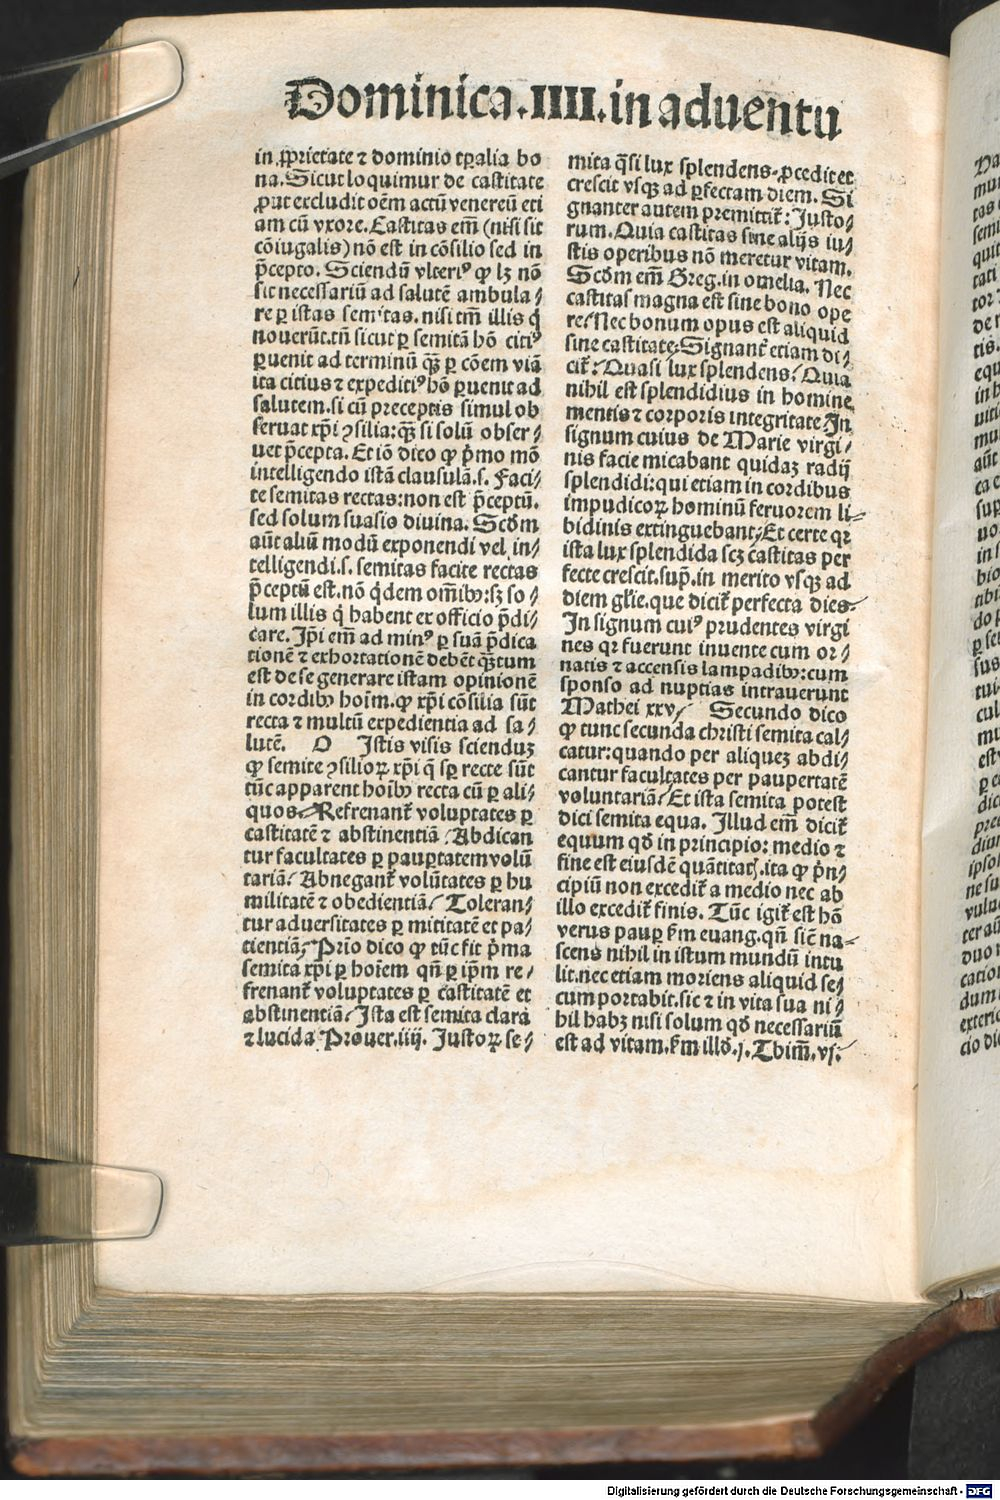 Dominica.IIII.in aduentu
in ꝓprietate ⁊ dominio tꝑalia bo
na. Sicut loquimur de castitate
ꝓut excludit oēm actū venereū eti
am cū vxore. Castitas em̄ (nisi sit
cōiugalis) nō est in cōsilio sed in
p̄cepto. Sciendū vlteriꝰ ꝙ lꝫ nō
sit necessariū ad salutē ambula⸗
re ꝑ istas semitas. nisi tm̄ illis q̇
nouerūt. tn̄ sicut ꝑ semitā hō citiꝰ
ꝑuenit ad terminū qꝫ̄ ꝑ cōem viā
ita citius ⁊ expeditiꝰ hō ꝑuenit ad
salutem. si cū preceptis simul ob
seruat xp̄i ꝯsilia: qꝫ̄ si solū obser⸗
uet p̄cepta. Et iō dico ꝙ ṗmo mō
intelligendo istā clausulā.s. Faci⸗
te semitas rectas: non est p̄ceptū.
sed solum suasio diuina. Scd̄m
aūt aliū modū exponendi vel in⸗
telligendi.s. semitas facite rectas
p̄ceptū est. nō q̇dem om̄ibꝰ: sꝫ so⸗
lum illis q̇ habent ex officio p̄di⸗
care. Ip̄i em̄ ad minꝰ ꝑ suā p̄dica
tionē ⁊ exhortationē debēt qꝫ̄tum
est de se generare istam opinionē
in cordibꝰ hoīm. ꝙ xp̄i cōsilia sūt
recta ⁊ multū expedientia ad sa⸗
lutē. O Istis visis scienduꝫ
ꝙ semite ꝯsilioꝝ xp̄i q̄ sꝑ recte sūt
tūc apparent hoībꝰ recta cū ꝑ ali⸗
quos/ Refrenant᷑ voluptates ꝑ
castitatē ⁊ abstinentiā/ Abdican
tur facultates ꝑ pauꝑtatem volū
tariā/ Abnegant᷑ volūtates ꝑ hu
militatē ⁊ obedientiā/ Toleran⸗
tur aduersitates ꝑ mititatē et pa⸗
tientiā/ Prīo dico ꝙ tūc fit ṗma
semita xp̄i ꝑ hoīem qn̄ ꝑ ip̄m re⸗
frenant᷑ voluptates ꝑ castitatē et
abstinentiā/ Ista est semita clara
⁊ lucida Prouer.iiij. Iustoꝝ se⸗
mita q̄si lux splendens. ꝓcedit et
crescit vsqꝫ ad ꝑfectam diem. Si
gnanter autem premittit᷑: Iusto⸗
rum. Quia castitas sine alijs iu⸗
stis operibus nō meretur vitam.
Scd̄m em̄ Greg. in omelia. Nec
castitas magna est sine bono ope
re/ Nec bonum opus est aliquid
sine castitate/ Signant᷑ etiam di⸗
cit᷑: Quasi lux splendens/ Quia
nihil est splendidius in homine
mentis ⁊ corporis integritate/ In
signum cuius de Marie virgi⸗
nis facie micabant quidaꝫ radij
splendidi: qui etiam in cordibus
impudicoꝝ hominū feruorem li⸗
bidinis extinguebant/ Et certe qꝛ
ista lux splendida scꝫ castitas per
fecte crescit.sup̄. in merito vsqꝫ ad
diem gl̄ie. que dicit᷑ perfecta dies/
In signum cuiꝰ prudentes virgi
nes qꝛ fuerunt inuente cum or⸗
natis ⁊ accensis lampadibꝰ: cum
sponso ad nuptias intrauerunt
Mathei xxv/ Secundo dico
ꝙ tunc secunda christi semita cal⸗
catur: quando per aliqueꝫ abdi⸗
cantur facultates per paupertatē
voluntariā/ Et ista semita potest
dici semita equa. Illud em̄ dicit᷑
equum qd̄ in principio: medio ⁊
fine est eiusdē quātitatꝭ. ita ꝙ ṗn⸗
cipiū non excedit᷑ a medio nec ab
illo excedit᷑ finis. Tūc igit᷑ est hō
verus pauꝑ ẜm euang. qn̄ sic̄ na⸗
scens nihil in istum mundū intu
lit. nec etiam moriens aliquid se⸗
cum portabit. sic ⁊ in vita sua ni⸗
hil habꝫ nisi solum qd̄ necessariū
est ad vitam. ẜm illd̄.j. Thim̄.vj.
Digitalisierung gefördert durch die Deutsche Forschungsgemeinschaft - DFG